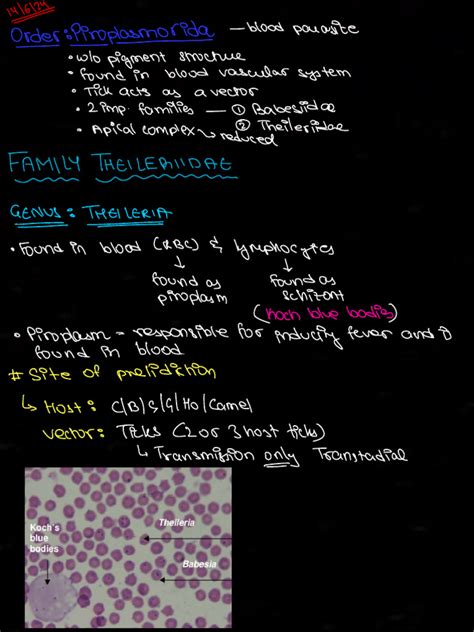 14/6/24
Order: Piroplasmorida — blood parasite
• w/o pigment structure
• found in blood vascular system
• Tick acts as a vector
• 2 imp. families — ① Babesiidae
② Theileriidae
• Apical complex ↳ reduced
FAMILY THEILERIIDAE
GENUS: THEILERIA
• Found in blood (RBC) & lymphocytes
↓ ↓
found as found as
piroplasm schizont
(Koch blue bodies)
• Piroplasm = responsible for producing fever and
found in blood
# Site of prelidiction
↳ Host: C/B/S/G/Ho/Camel
vector: Ticks (2 or 3 host ticks)
↳ Transmission only Transtadial
Koch's
blue
bodies
Theileria
Babesia